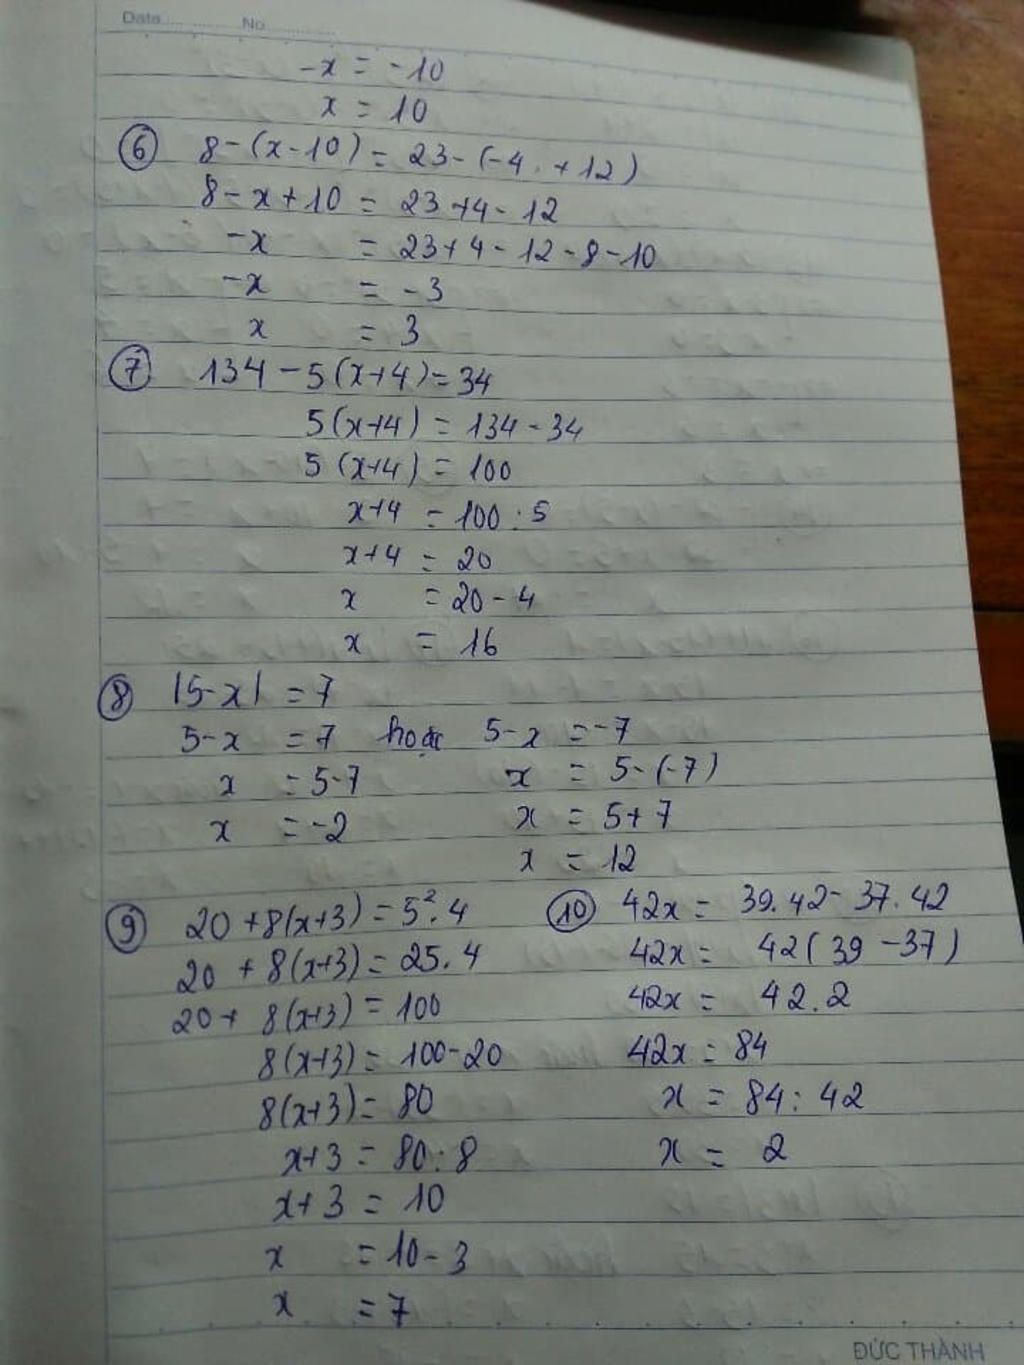 Date No
-x = -10
x = 10
⑥ 8-(x-10) = 23-(-4 + 12)
8-x+10 = 23+4-12
-x = 23+4-12-8-10
-x = -3
x = 3
⑦ 134-5(x+4)=34
5(x+4) = 134-34
5(x+4) = 100
x+4 = 100:5
x+4 = 20
x = 20-4
x = 16
⑧ |5-x| = 7
5-x = 7 hoặc 5-x = -7
x = 5-7 x = 5-(-7)
x = -2 x = 5+7
x = 12
⑨ 20+8(x+3) = 5².4
20+8(x+3) = 25.4
20+8(x+3) = 100
8(x+3) = 100-20
8(x+3) = 80
x+3 = 80:8
x+3 = 10
x = 10-3
x = 7
⑩ 42x = 39.42-37.42
42x = 42(39-37)
42x = 42.2
42x = 84
x = 84:42
x = 2
ĐỨC THÀNH